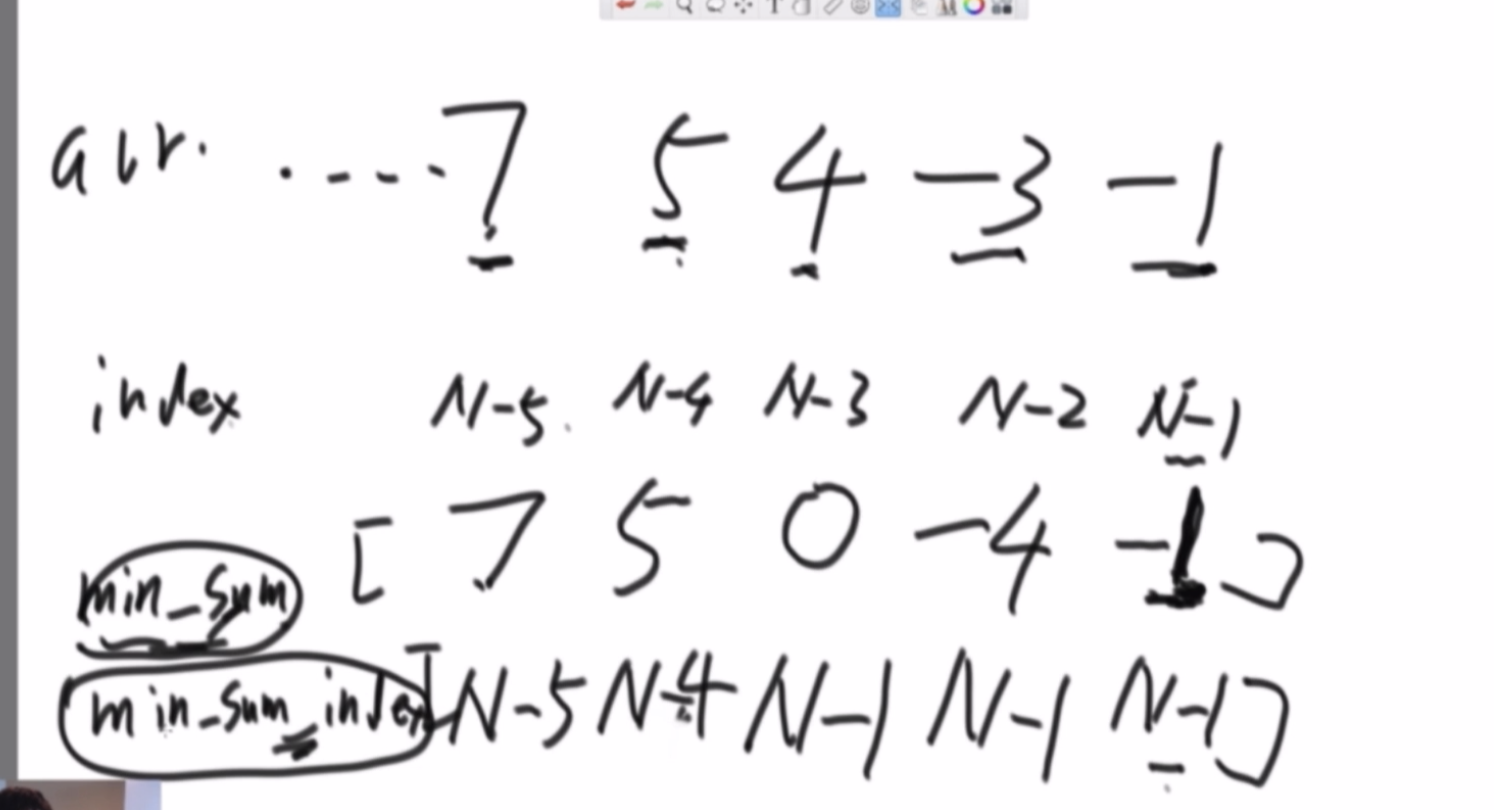 arr. ....7 5 4 -3 -1
index N-5 N-4 N-3 N-2 N-1
min_sum [ 7 5 0 -4 -1 ]
min_sum_index [ N-5 N-4 N-1 N-1 N-1 ]